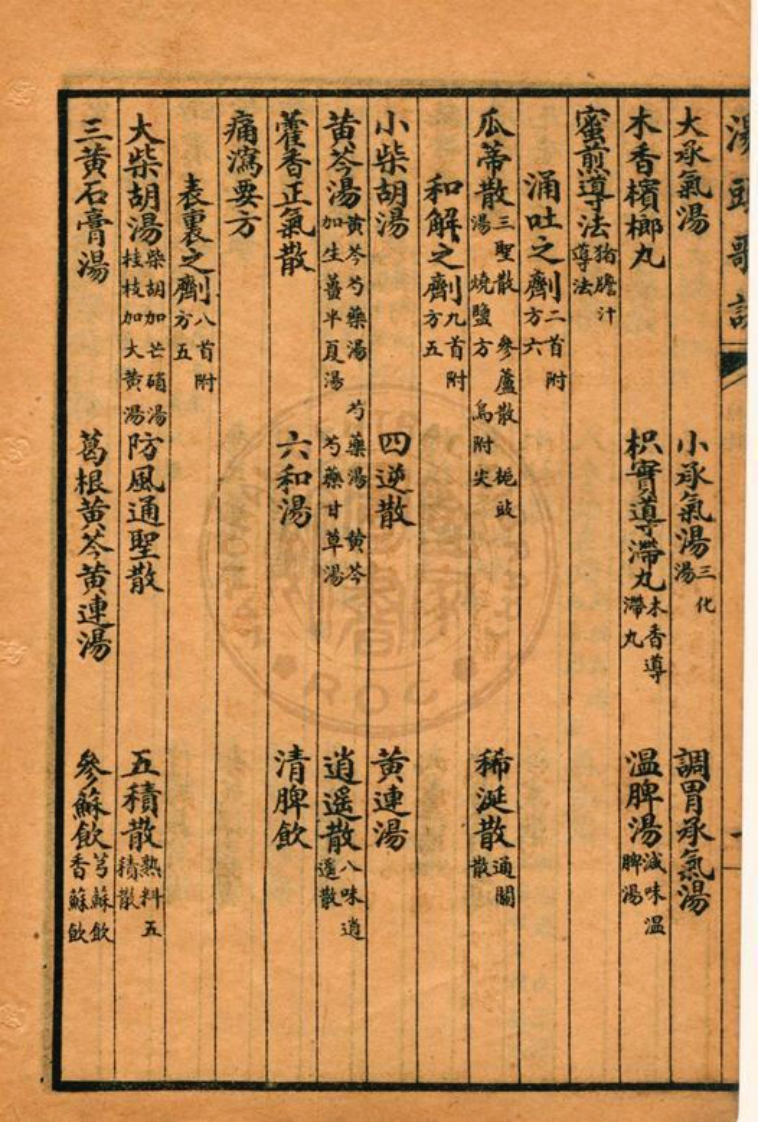 湯頭歌訣
大承氣湯 小承氣湯三化湯 調胃承氣湯
木香檳榔丸 枳實導滯丸木香導滯丸 溫脾湯減味溫脾湯
蜜煎導法猪膽汁導法
涌吐之劑二首附方六
瓜蒂散三聖散 參蘆散 梔豉湯 燒鹽方 烏附尖 稀涎散通關散
和解之劑九首附方五
小柴胡湯 四逆散 黃連湯
黃芩湯黃芩芍藥湯 芍藥湯 黃芩加生薑半夏湯 芍藥甘草湯 逍遥散八味逍遥散
藿香正氣散 六和湯 清脾飲
痛瀉要方
表裏之劑八首附方五
大柴胡湯柴胡加芒硝湯桂枝加大黃湯 防風通聖散 五積散熟料五積散
三黃石膏湯 葛根黃芩黃連湯 參蘇飲芎蘇飲香蘇飲